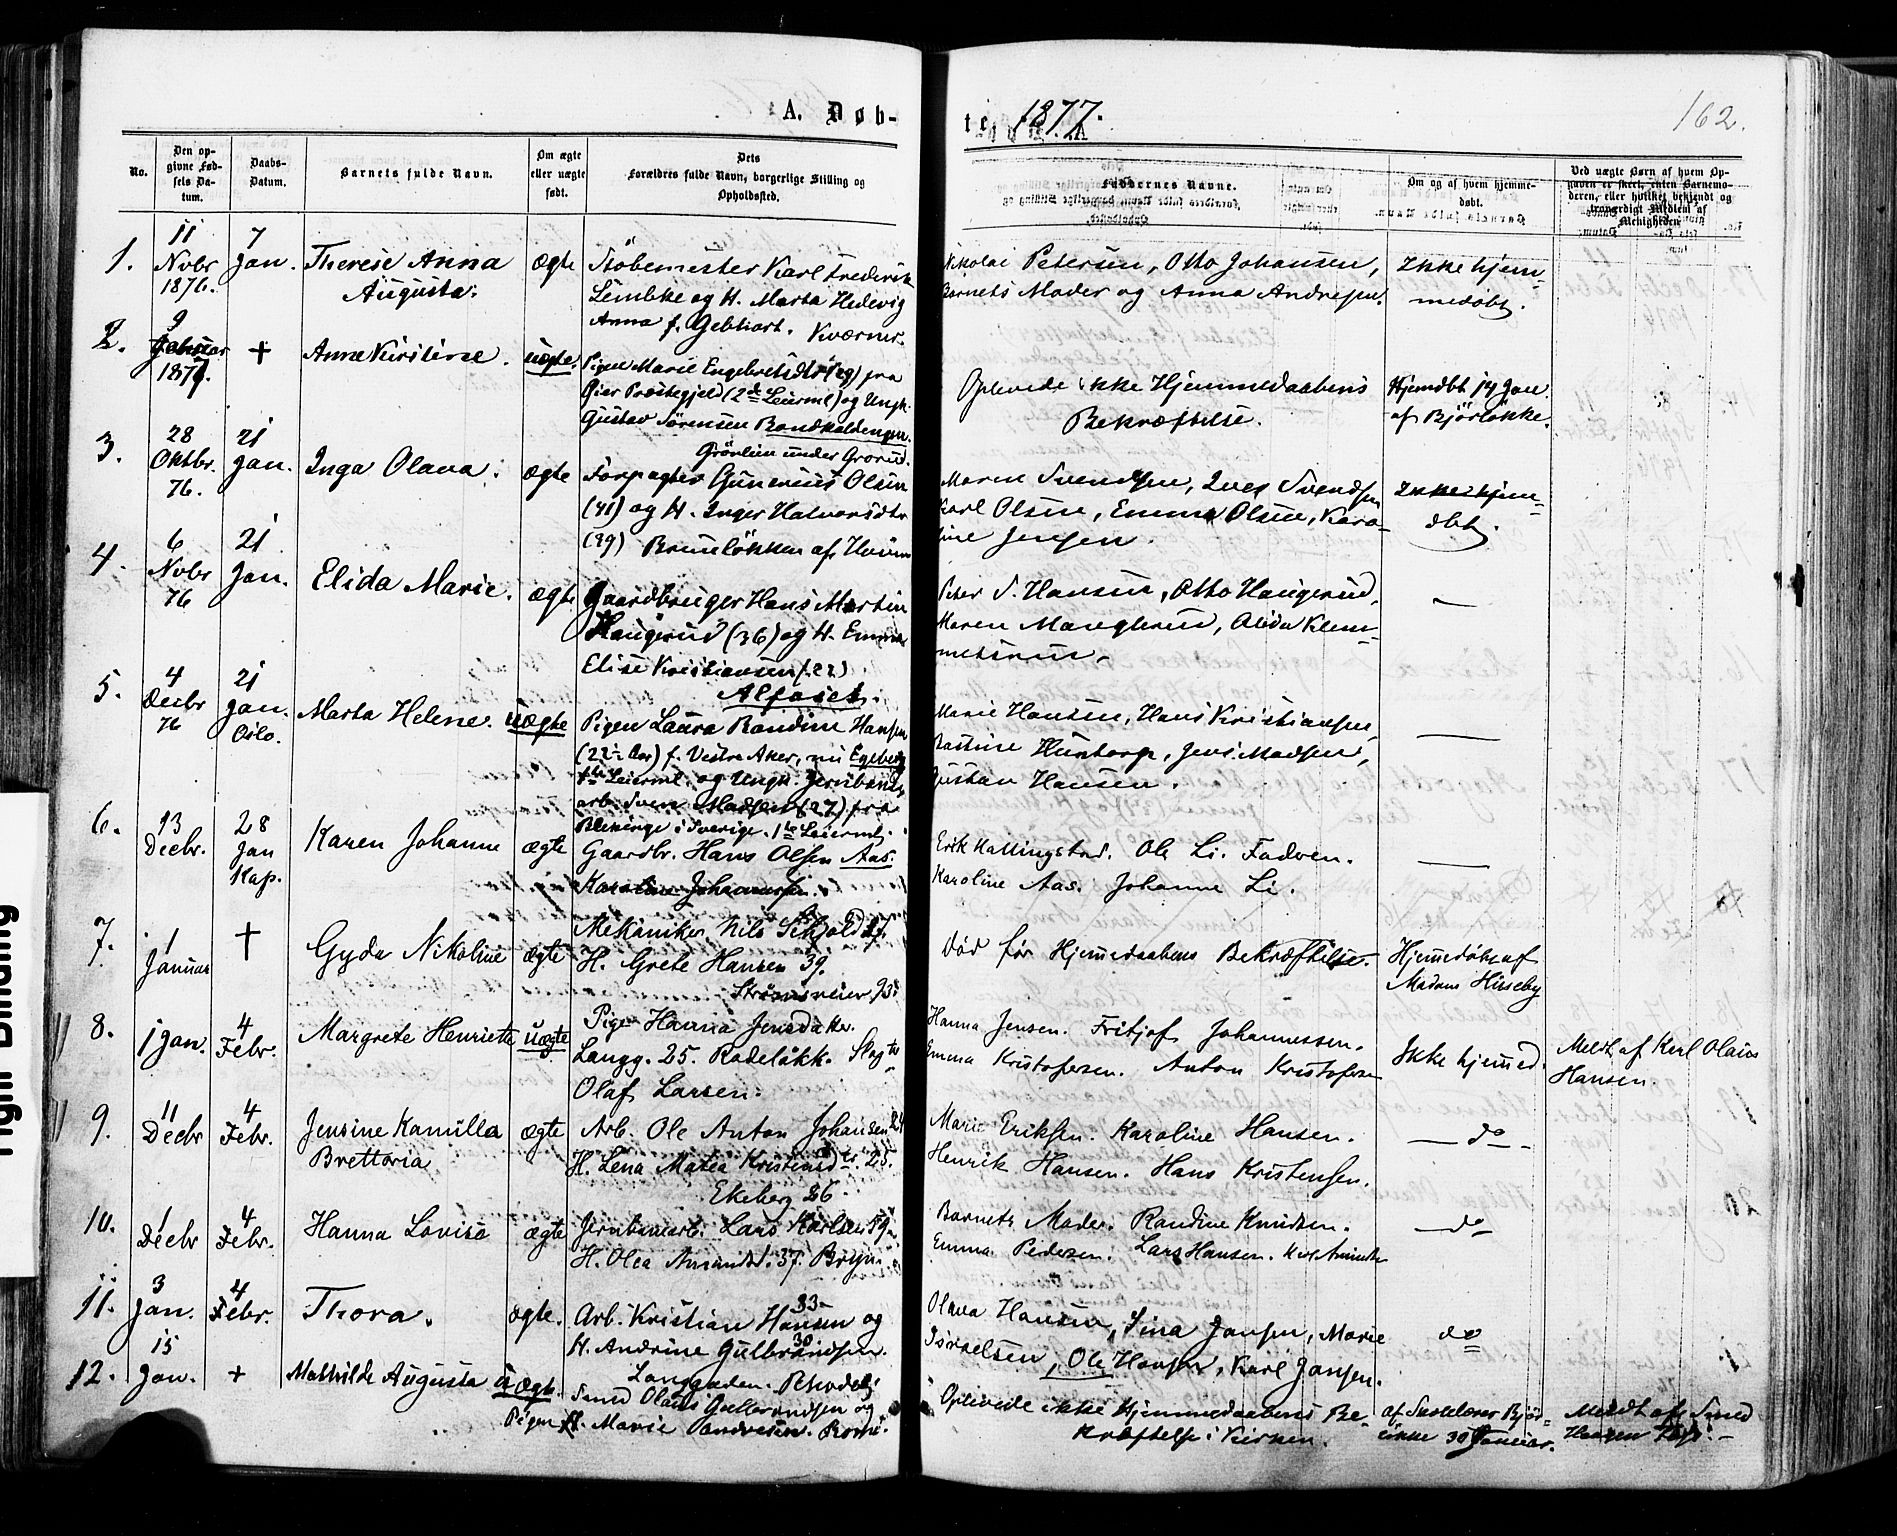 A. Døb-
te 1877.
162.
No.
Den op-
givne Fød-
sels Da-
tum.
Daabs-
Datum.
Barnets fulde Navn.
Om ægte
eller uægte
født.
Dets
Forældres fulde Navn, borgerlige Stilling og
Opholdssted.
Faddernes Navne.
Om og af hvem hjemme-
døbt.
Ved uægte Børn af hvem Op-
haven er skeet, enten Barnemo-
deren, eller hvilket bekjendt og
troværdigt Medlem af
Menigheden
1.
11
Novbr
1876.
7
Jan.
Therese Anna
Augusta.
ægte
Støbemester Karl Frederik
Lembke og H. Marta Hedevig
Anna f. Gebhart. Kværner.
Nikolai Petersen, Otto Johansen,
Barnets Moder og Anna Andresen.
Ikke hjem-
medøbt.
2.
9
Januar
1877.
+
Anne Kirstine.
uægte.
Pigen Marie Engebretsdtr (29) fra
Øier Præstegjeld (2de Leierml) og Ungk.
Gustav Sörensen
Oplevede ikke Hjemmedaabens
Bekræftelse.
Hjemdbt 14 Jan.
af Björløkke.
3.
28
Oktbr.
76.
21
Jan.
Inga Olava.
ægte
Grorlien under Grorud.
Forpagter Gunerius Olsen
(41) og H. Inger Halvorsdtr
(39) Bruneløkken af
Maren Svendsen, Svendsen
Karl Olsen, Emma Olsen, Karo-
line Jensen.
Ikke hjem-
dbt.
4.
6
Novbr
76
21
Jan.
Elida Marie.
ægte
Gaardbruger Hans Martin
Haugerud (36) og H. Emma
Elise Kristiansen (22)
Alfaset.
Peter S. Hansen, Otto Haugerud,
Maren Manglerud, Alida Klem-
metsrud.
—
5.
4
Decbr
76
21
Jan.
Oslo.
Marta Helene.
uægte
Pigen Laura Randine Hansen
(22½ Aar) f. Vestre Aker, nu Egeberg
1te Leierml. og Ungk. Jernbane-
arb. Sven Madsen (27) fra
Blekinge i Sverige. 1te Leierml.
Marie Hansen, Hans Kristiansen,
Huntorp, Jens Madsen,
Gustav Hansen.
—
6.
13
Decbr.
28
Jan
Kap.
Karen Johanne
ægte
Gaardbr. Hans Olsen Aas.
Karoline Johannessen.
Erik Kallingstad. Ole Li. Faderen.
Karoline Aas. Johanne Li.
—
7.
1
Januar
+
Gyda Nikoline
ægte
Mekaniker Nils
H. Grete Hansen 39.
Strömsveien 93.
Död før Hjemmedaabens Bekræftelse.
Hjemmedøbt af
Madam Hisseby
8.
1 Jan.
4
Febr.
Margrete Henriette
uægte
Pige Hanna Jensdatter.
Langg. 25. Rodeløkk.
Olaf Larsen.
Hanna Jensen. Fritjof Johannessen.
Emma Kristofersen. Anton Kristofersen
Ikke hjemmed.
Meldt af Karl Olaus
Hansen.
9.
11
Decbr
4
Febr.
Jensine Kamilla
Brettoria
ægte
Arb. Ole Anton Johansen 24
H. Lena Matea Kristensdtr. 25.
Ekeberg 26.
Marie Eriksen. Karoline Hansen.
Henrik Hansen. Hans Kristensen.
— do —
10.
1
Decbr
4
Febr.
Hanna Lovise
ægte
Jernbanearb. Lars Karlsen 39
H. Olea Amundsd. 37. Bryn.
Barnets Moder. Randine Knudsen.
Emma Pedersen. Lars Hansen. Karl
— do
11.
3
Jan.
4
Febr.
Thora.
ægte.
Arb. Kristian Hansen 33 og
H. Andrine Gulbrandsen. 30
Langgaden.
Olava Hansen, Sina Jansen, Marie
Israelsen, Ole Hansen, Karl Jansen.
do
12.
15
Jan.
+
Mathilde Augusta
uægte.
Smed Olaus Gulbrandsen og
Pigen Marie
Oplevede ikke Hjemmedaabens Be-
kræftelse i Kirken.
af Skolelærer Bjør-
løkke 30 Januar.
Meldt af Smed